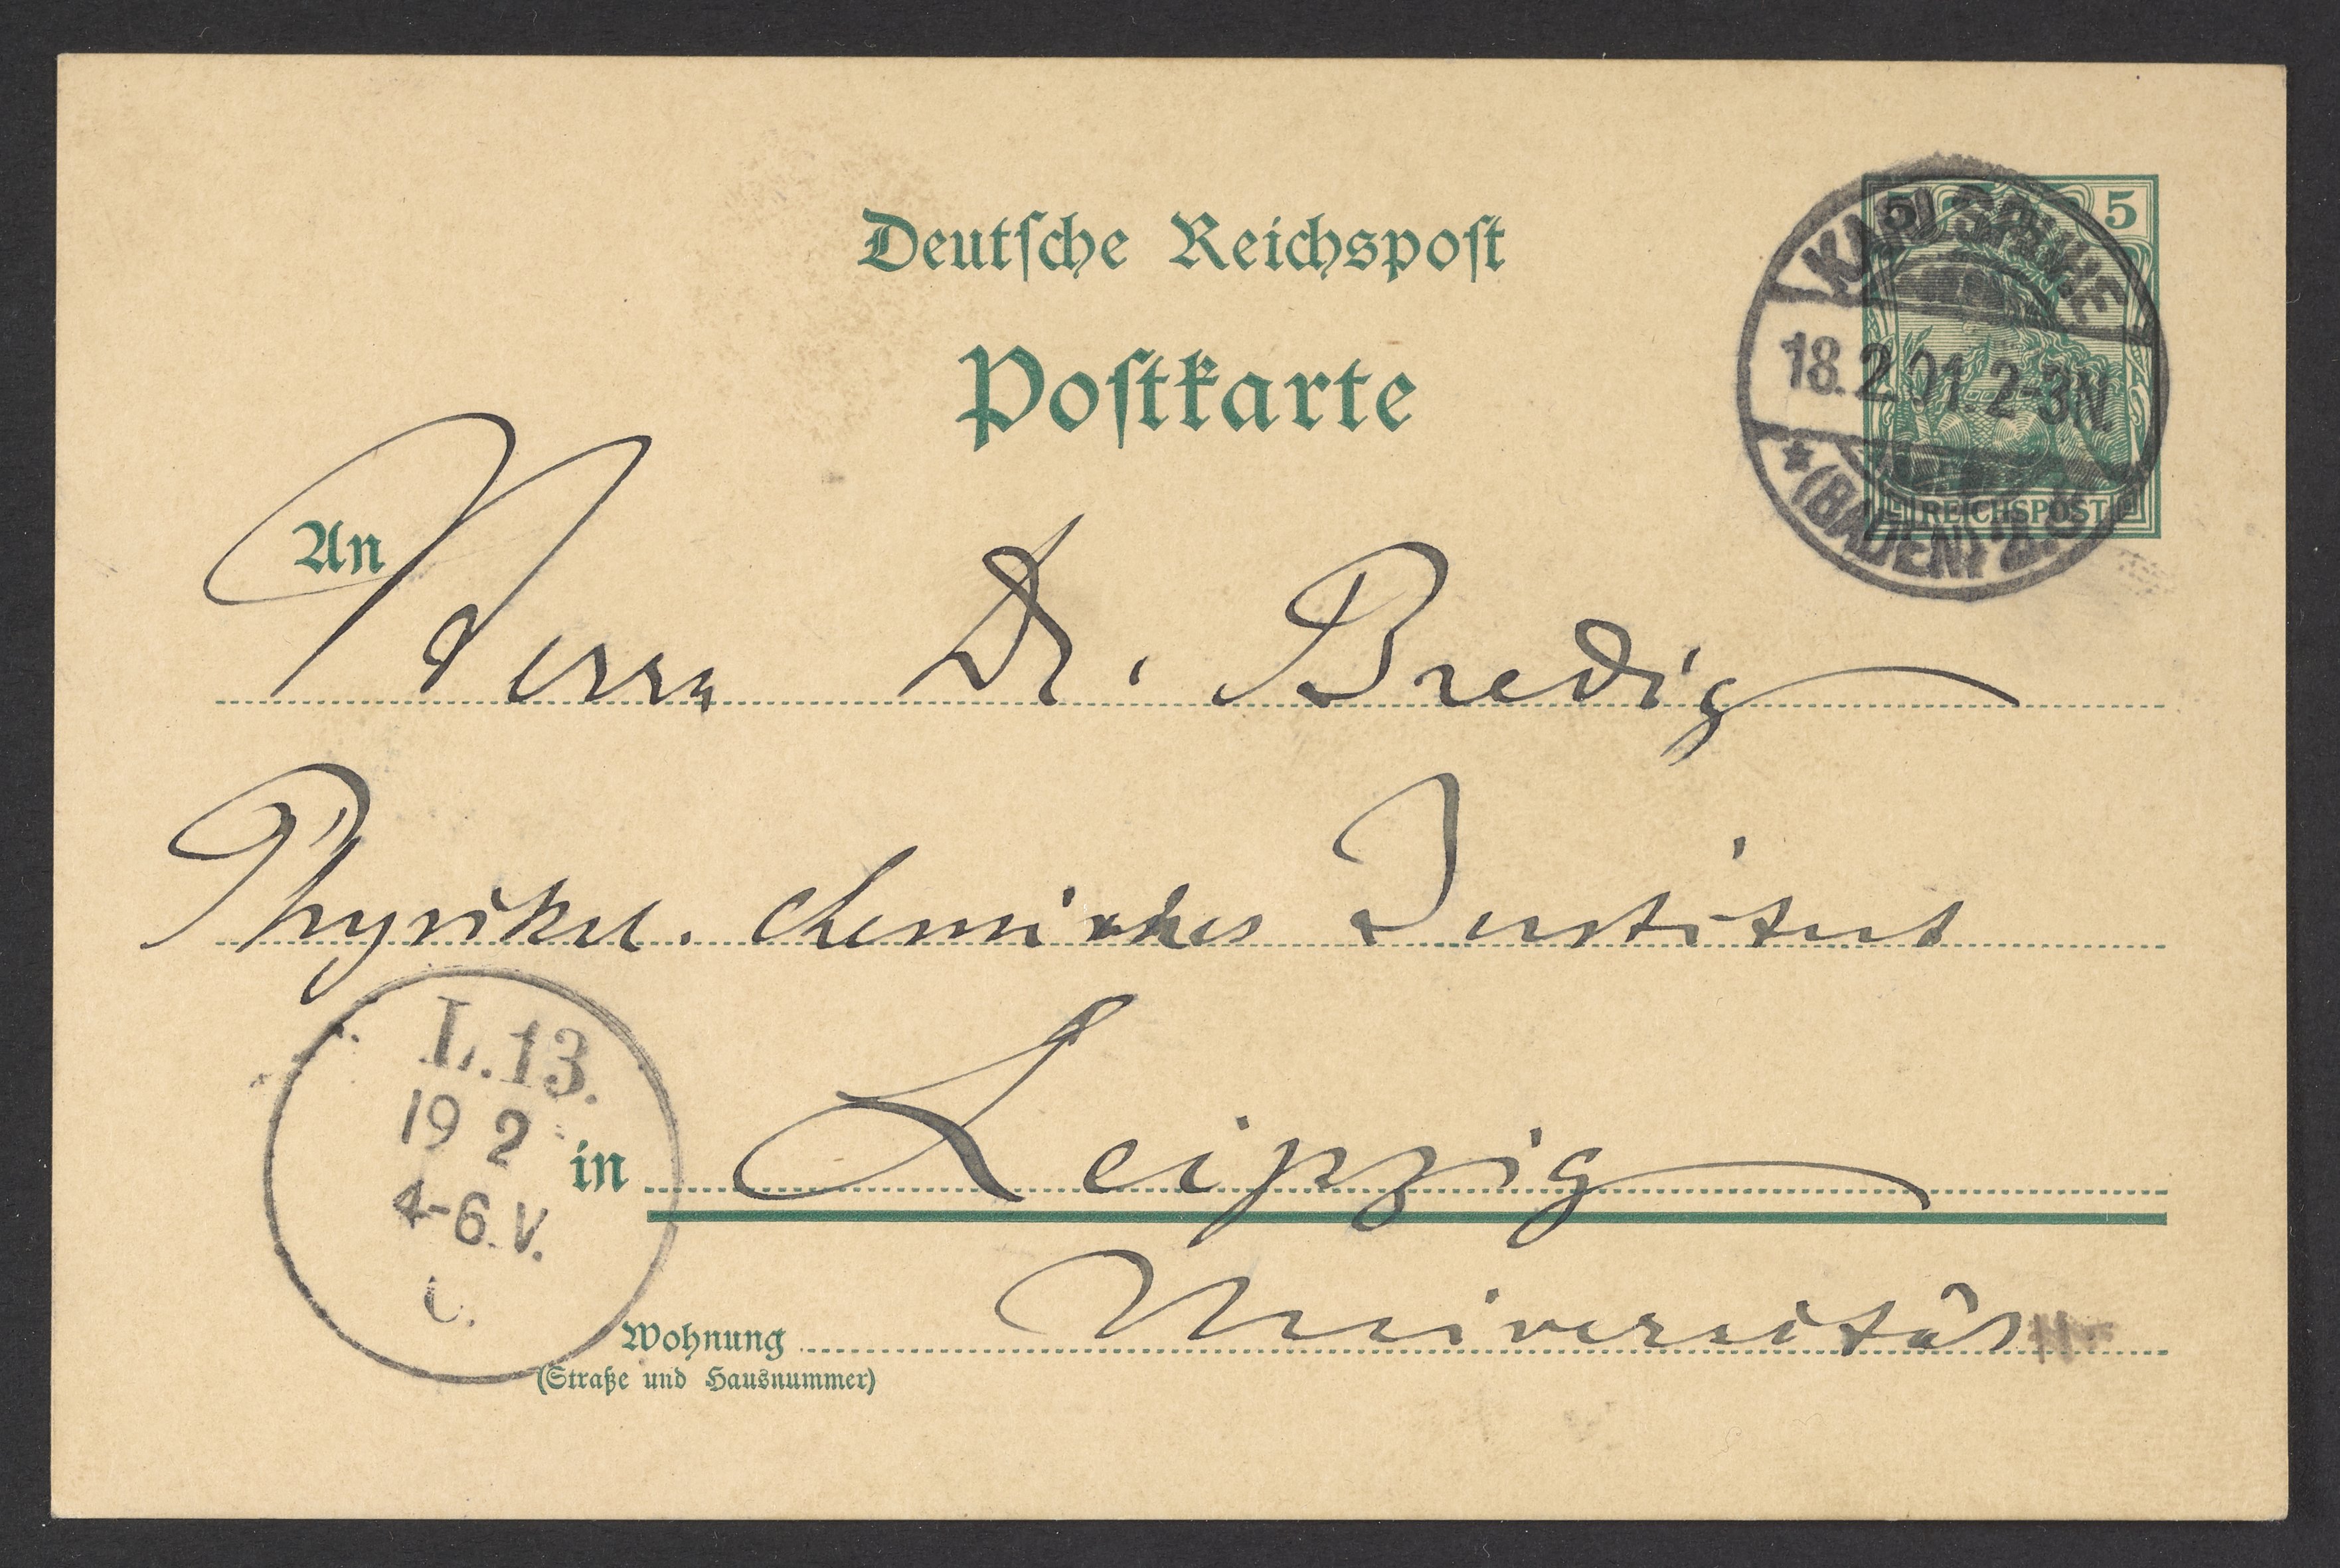 Deutsche Reichspost
Postkarte
5 5
REICHSPOST
KARLSRUHE
18.2.01.2-3N.
*(BADEN)
An Herrn Dr. Bredig
Physikal. chemisches Institut
L.13.
19 2
4-6.V.
in Leipzig
Wohnung Universität
(Straße und Hausnummer)